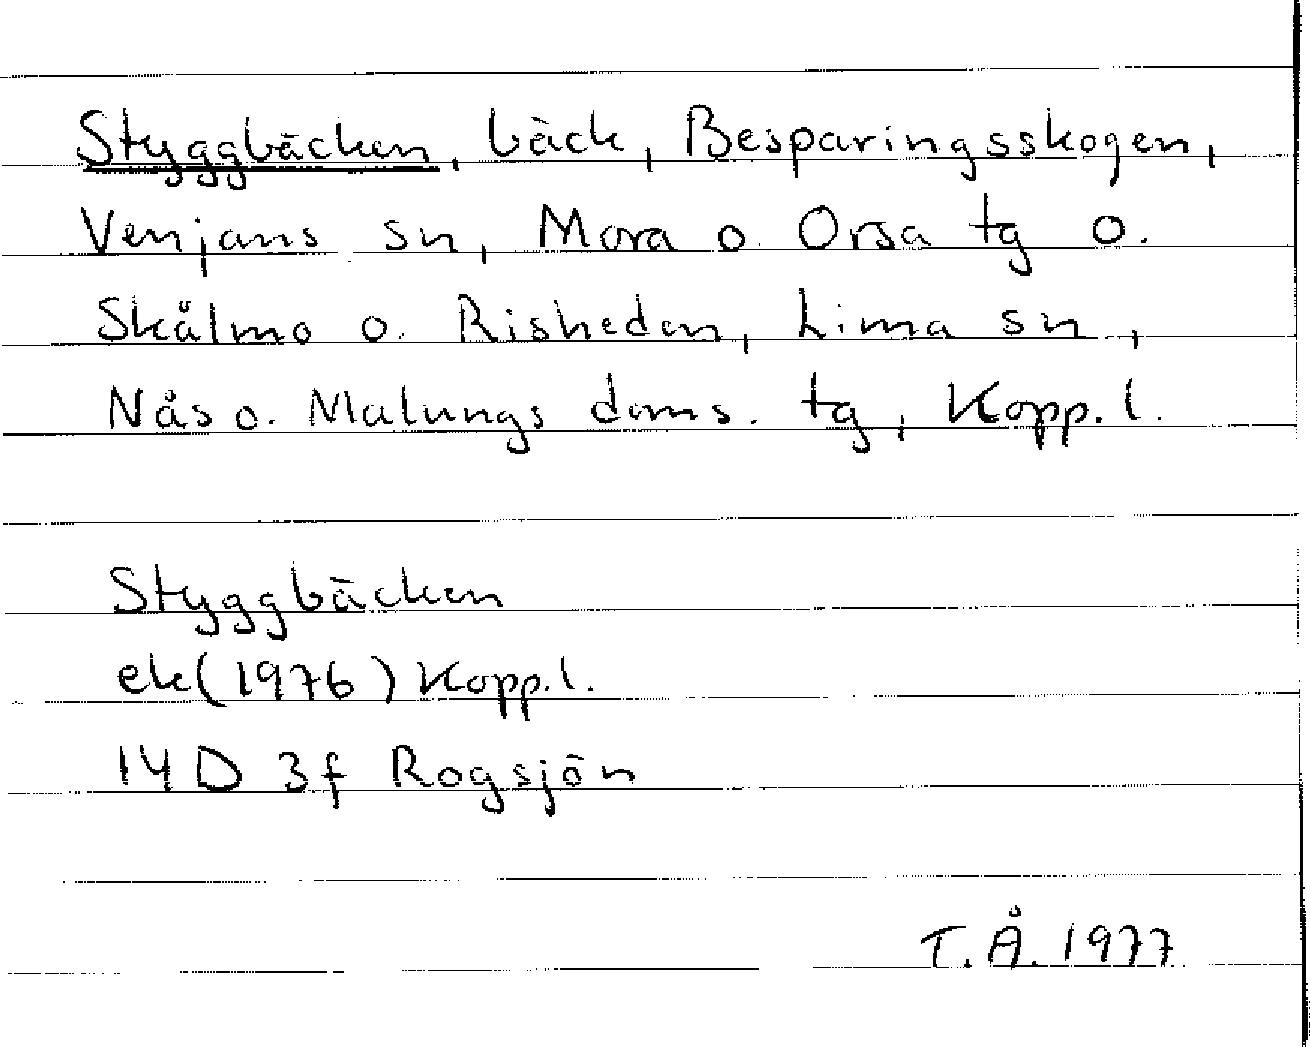 Styggbäcken, bäck, Besparingsskogen,
Venjans sn, Mora o Orsa tg o.
Skålmo o. Risheden, Lima sn,
Nås o. Malungs doms. tg, Kopp. l.
Styggbäcken
ek (1976) Kopp. l.
14 D 3f Rogsjön
T. Å. 1977